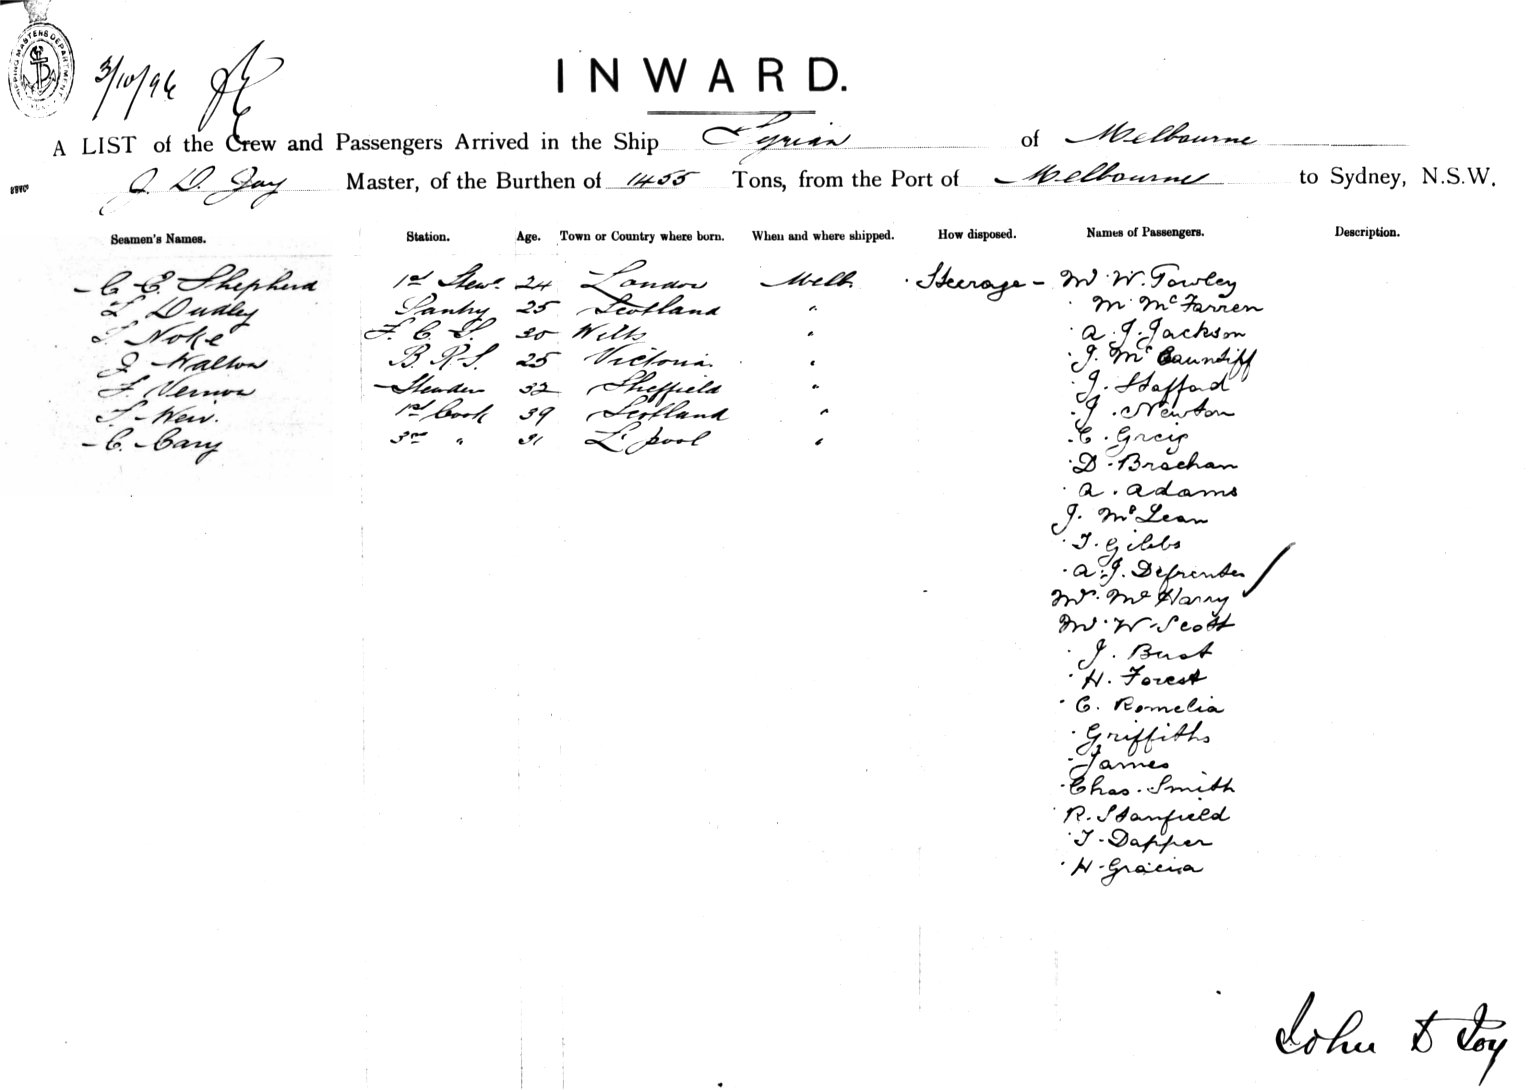 SHIPPING MASTERS DEPARTMENT
3/10/96
INWARD.
A LIST of the Crew and Passengers Arrived in the Ship Tyrian of Melbourne
J. D. Joy Master, of the Burthen of 1455 Tons, from the Port of Melbourne to Sydney, N.S.W.
Seamen's Names. Station. Age. Town or Country where born. When and where shipped. How disposed. Names of Passengers. Description.
C. E. Shepherd 1st Stewd 24 London Melb. Steerage - Mr W. Towley
L Dudley Pantry 25 Scotland " M McFarren
T Noke F. C. S. 30 Wilts " A. J. Jackson
J Walton B. R. S. 25 Victoria " J. Mc
F. Vernon 32 Sheffield " J. Stafford
T. Weir. 1st Cook 39 Scotland " J. Newton
C. Cary 3rd " 31 L'pool " C. Greig
D. Brachan
A. Adams
J. McLean
T. Gibbs
A. J.
Mr. McHarry
Mr W. Scott
J. Bust
H. Forest
C. Romelia
Griffiths
James
Chas. Smith
R. Stanfield
T. Dapper
H. Gracia
John D Joy